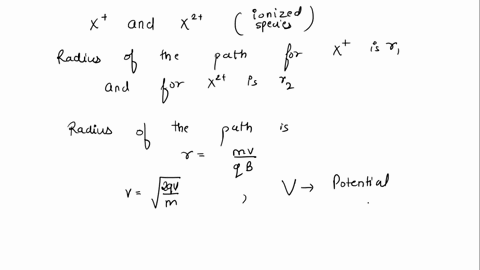 X⁺ and X²⁺ (ionized species)
Radius of the path for X⁺ is r₁
and for X²⁺ is r₂
Radius of the path is
r = mv/qB
v = √(2qV/m) , V → Potential